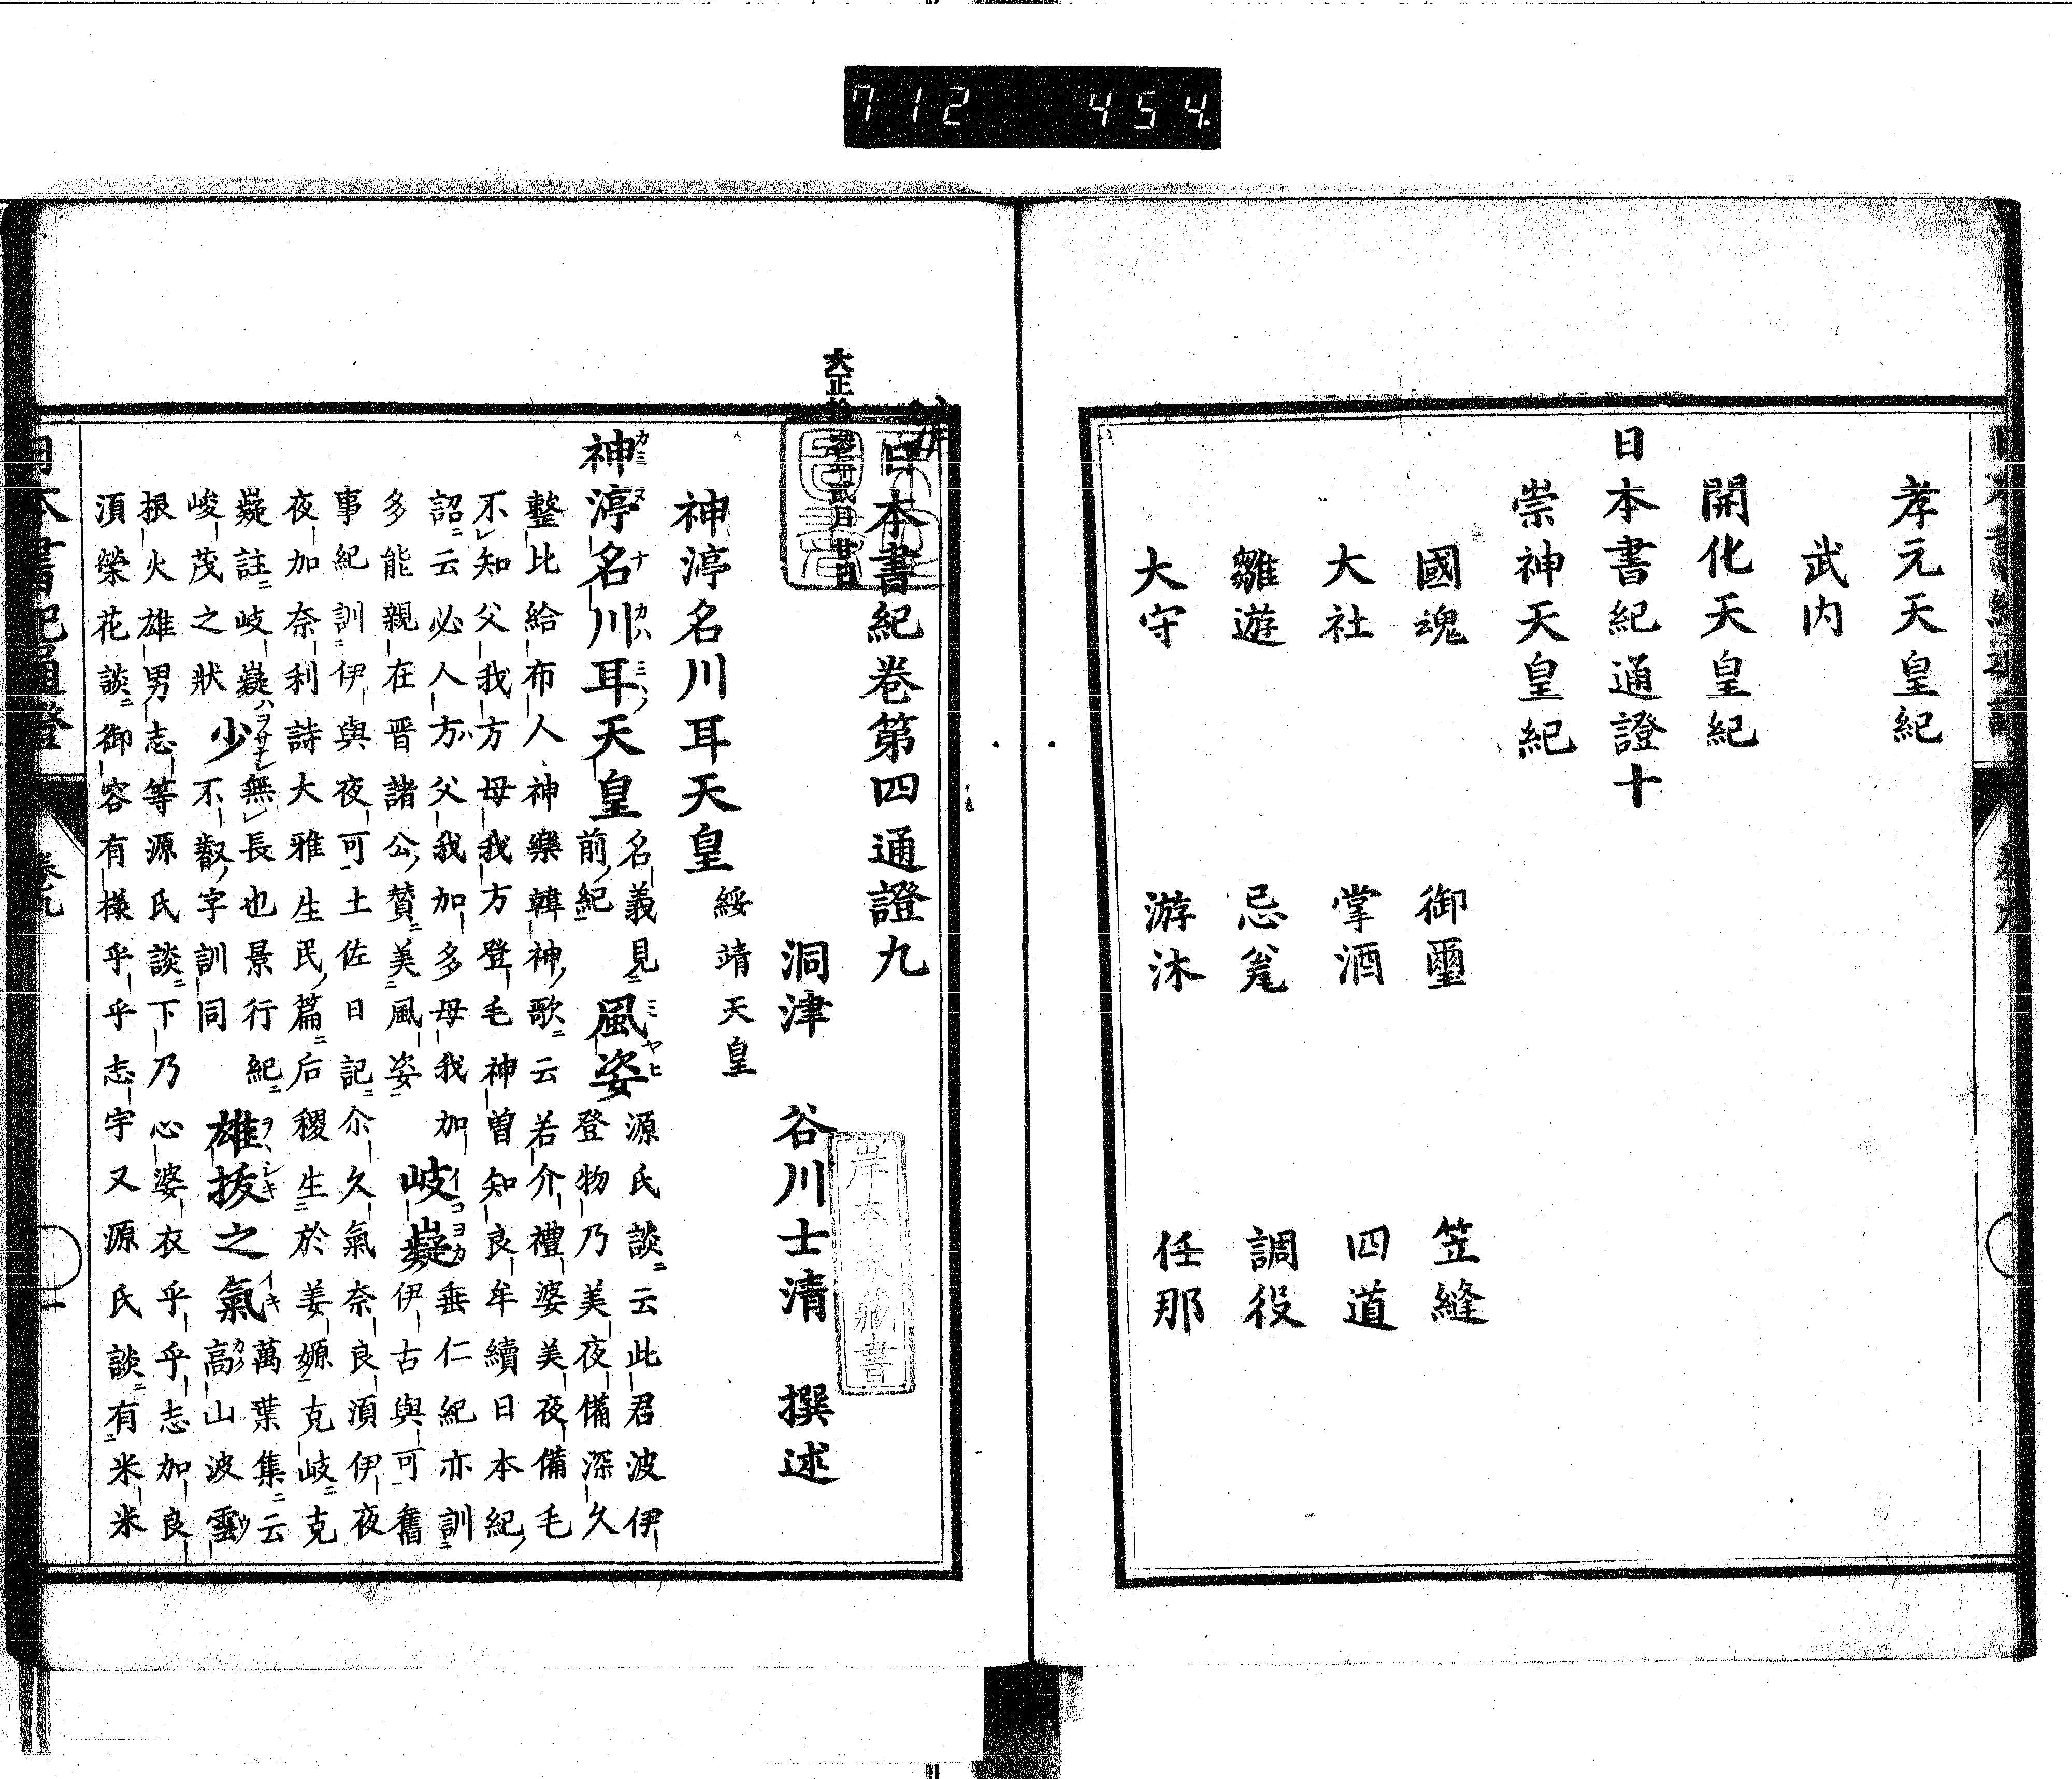 712 454
孝元天皇紀
武内
開化天皇紀
日本書紀通證十
崇神天皇紀
國魂 御璽 笠縫
大社 掌酒 四道
雛遊 忌瓮 調役
大守 游沐 任那
日本書紀卷第四通證九
洞津 谷川士清 撰述
神渟名川耳天皇 綏靖天皇
神渟名川耳天皇 名義見
前紀 風姿 源氏談云此君波伊
登物乃美夜備深久
整比給布人神樂韓神歌云若介禮婆美夜備毛
不知父我方母我方登毛神曽知良牟續日本紀
詔云必人方父我加多母我加 岐嶷 垂仁紀亦訓
多能親在晋諸公賛美風姿 伊古與可舊
事紀訓伊與夜可土佐日記尒久氣奈良湏伊夜
夜加奈利詩大雅生民篇后稷生於姜嫄克岐克
嶷註岐嶷 少 無長也景行紀
不叡字訓同 雄拔之氣 萬葉集云
高山波雲
峻茂之狀
根火雄男志等源氏談下乃心婆衣乎乎志加良
湏榮花談御容有様乎乎志宇又源氏談有米米
日本書紀通證 卷九 一
岸本家藏書